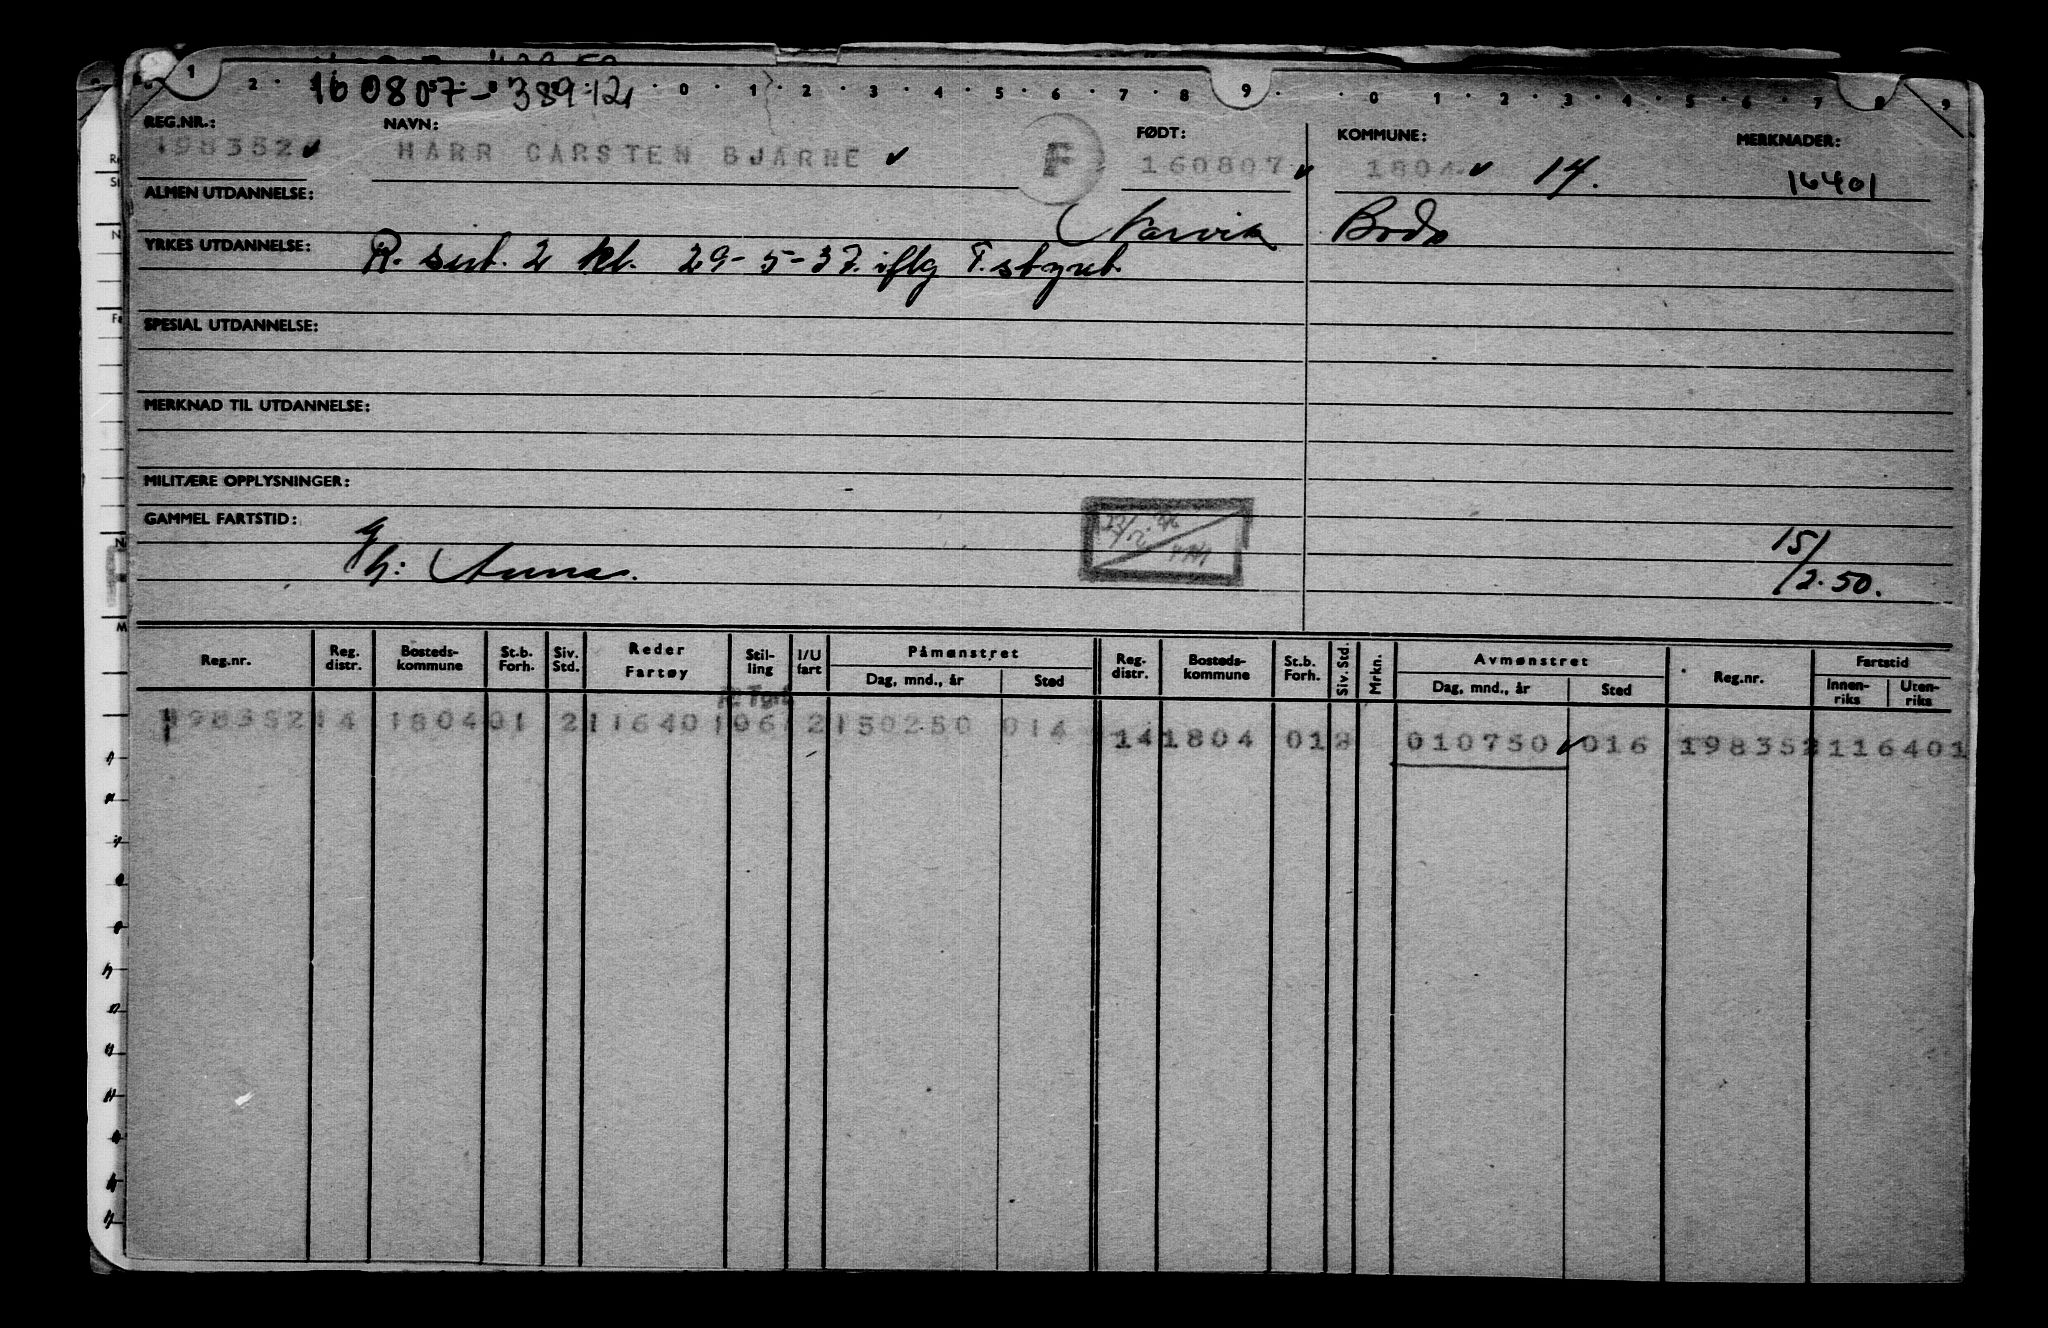 160807-38912
REG.NR.: NAVN: FØDT: KOMMUNE: MERKNADER:
198352 HARR CARSTEN BJARNE F 160807 1804 14. 16401
ALMEN UTDANNELSE:
Narvik Bodø
YRKES UTDANNELSE: R. sert. 2 kl. 29-5-37. iflg T. styret.
SPESIAL UTDANNELSE:
MERKNAD TIL UTDANNELSE:
MILITÆRE OPPLYSNINGER:
GAMMEL FARTSTID:
Gh: Anna.
15/2.50.
Reg.nr. Reg. distr. Bosteds-kommune St.b. Forh. Siv. Std. Reder Fartøy Stil-ling I/U fart Påmønstret Dag, mnd., år Sted Reg. distr. Bosteds-kommune St.b. Forh. Siv. Std. Mrkn. Avmønstret Dag, mnd., år Sted Reg.nr. Fartstid Innen-riks Uten-riks
198352 14 1804 01 2 116401 061 2 150250 014 14 1804 01 2 010750 016 198352 116401